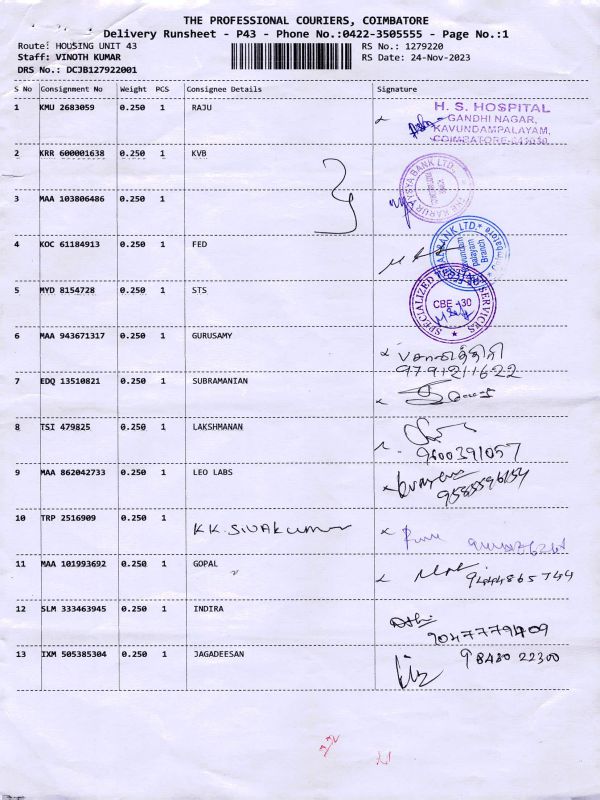 THE PROFESSIONAL COURIERS, COIMBATORE
Delivery Runsheet - P43 - Phone No.:0422-3505555 - Page No.:1
Route: HOUSING UNIT 43 RS No.: 1279220
Staff: VINOTH KUMAR RS Date: 24-Nov-2023
DRS No.: DCJB127922001
S No Consignment No Weight PCS Consignee Details Signature
1 KMU 2683059 0.250 1 RAJU
H. S. HOSPITAL
GANDHI NAGAR,
KAVUNDAMPALAYAM,
COIMBATORE-641030
2 KRR 600001638 0.250 1 KVB
3 MAA 103806486 0.250 1
4 KOC 61184913 0.250 1 FED
5 MYD 8154728 0.250 1 STS
SPECIALIZED TESTING SERVICES
CBE -30
6 MAA 943671317 0.250 1 GURUSAMY
9791211622
7 EDQ 13510821 0.250 1 SUBRAMANIAN
8 TSI 479825 0.250 1 LAKSHMANAN
9600391057
9 MAA 862042733 0.250 1 LEO LABS
9585596154
10 TRP 2516909 0.250 1 KK.Sivakumar
11 MAA 101993692 0.250 1 GOPAL
9444865744
12 SLM 333463945 0.250 1 INDIRA
13 IXM 505385304 0.250 1 JAGADEESAN 98430 22300